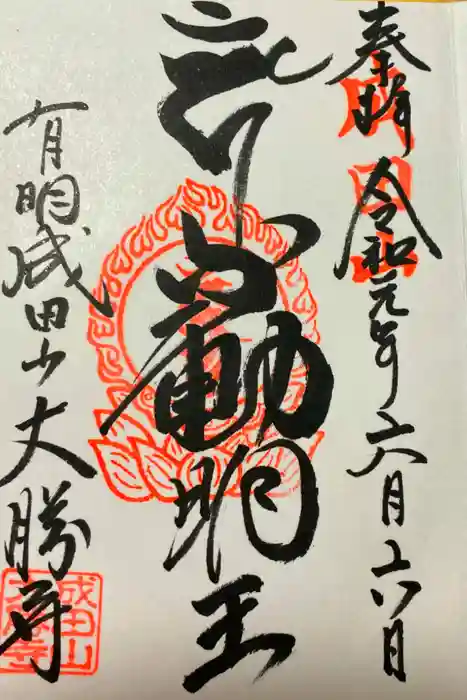 奉拝 令和元年六月六日
不動明王
有明成田山大勝寺
成田山
大勝寺